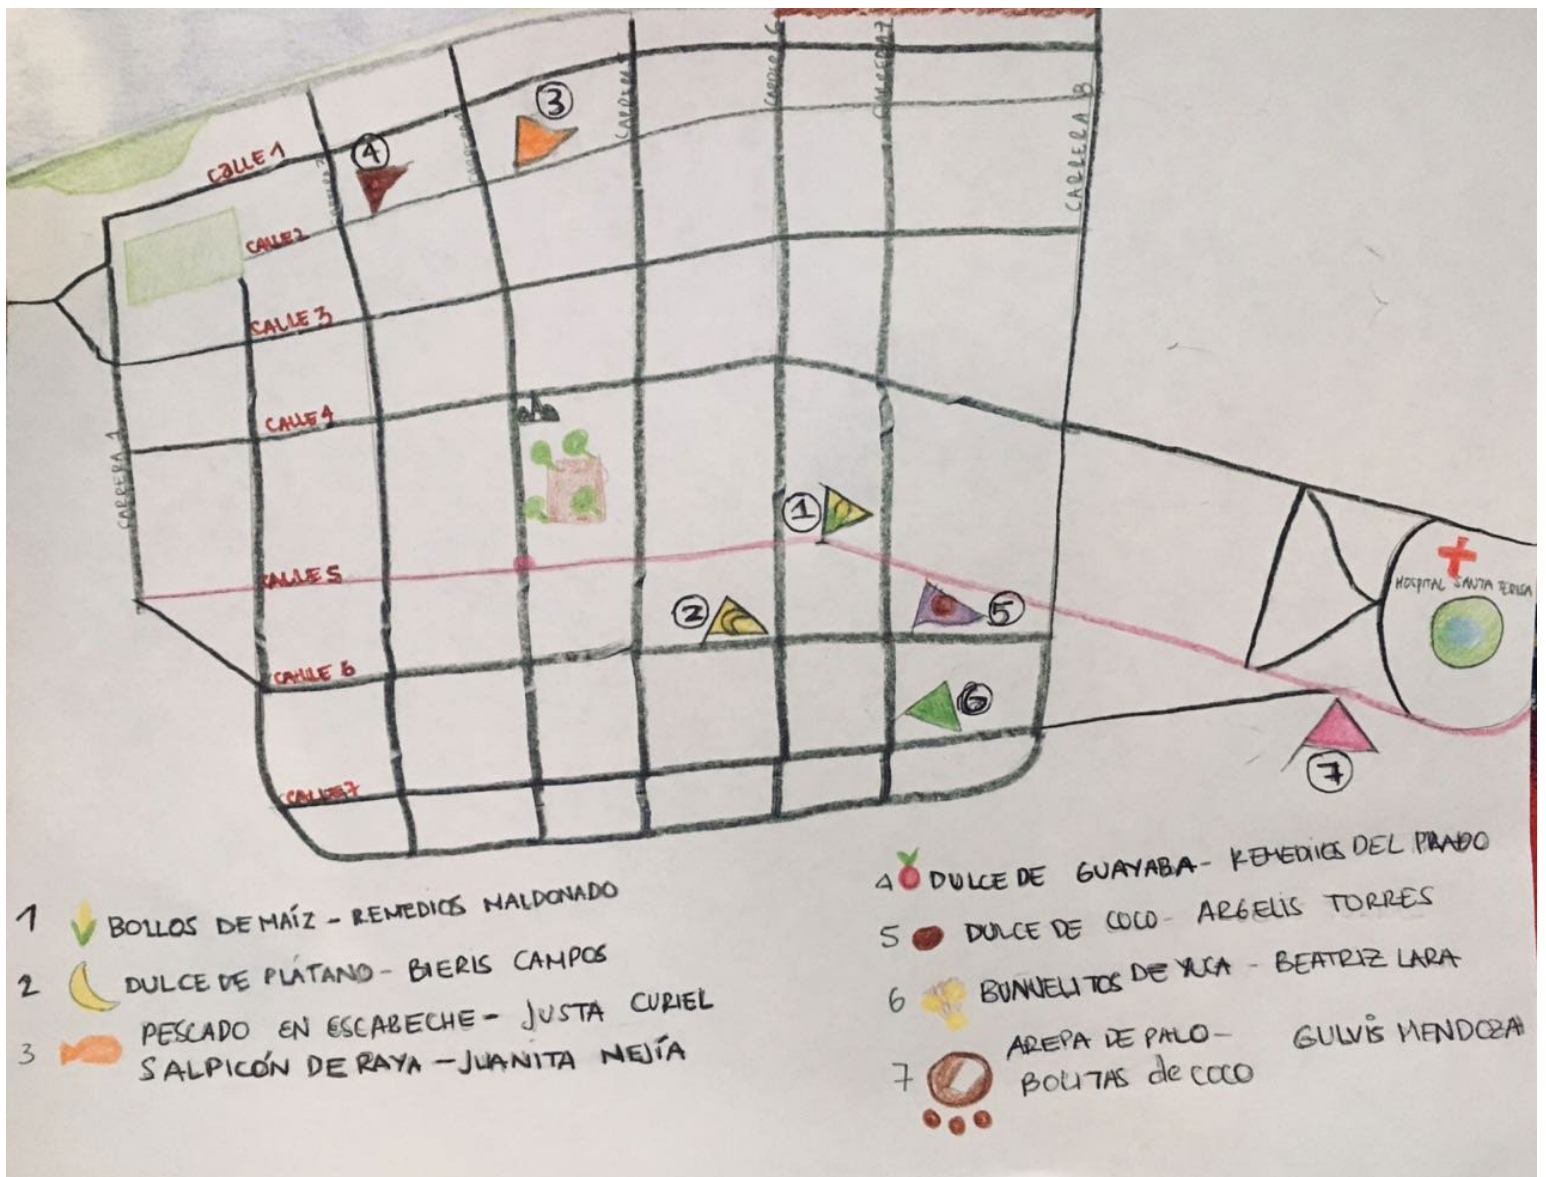 CALLE 1
CALLE 2
CALLE 3
CALLE 4
CALLE 5
CALLE 6
CALLE 7
CARRERA 1
CARRERA
CARRERA 7
CARRERA 8
3
4
1
2
5
6
7
HOSPITAL SANTA TERESA
1 BOLLOS DE MAÍZ - REMEDIOS MALDONADO
2 DULCE DE PLÁTANO - BIERIS CAMPOS
3 PESCADO EN ESCABECHE - JUSTA CURIEL
SALPICÓN DE RAYA - JUANITA MEJÍA
4 DULCE DE GUAYABA - REMEDIOS DEL PRADO
5 DULCE DE COCO - ARGELIS TORRES
6 BUNUELITOS DE YUCA - BEATRIZ LARA
7 AREPA DE PALO - GULVIS MENDOZA
BOLITAS de COCO